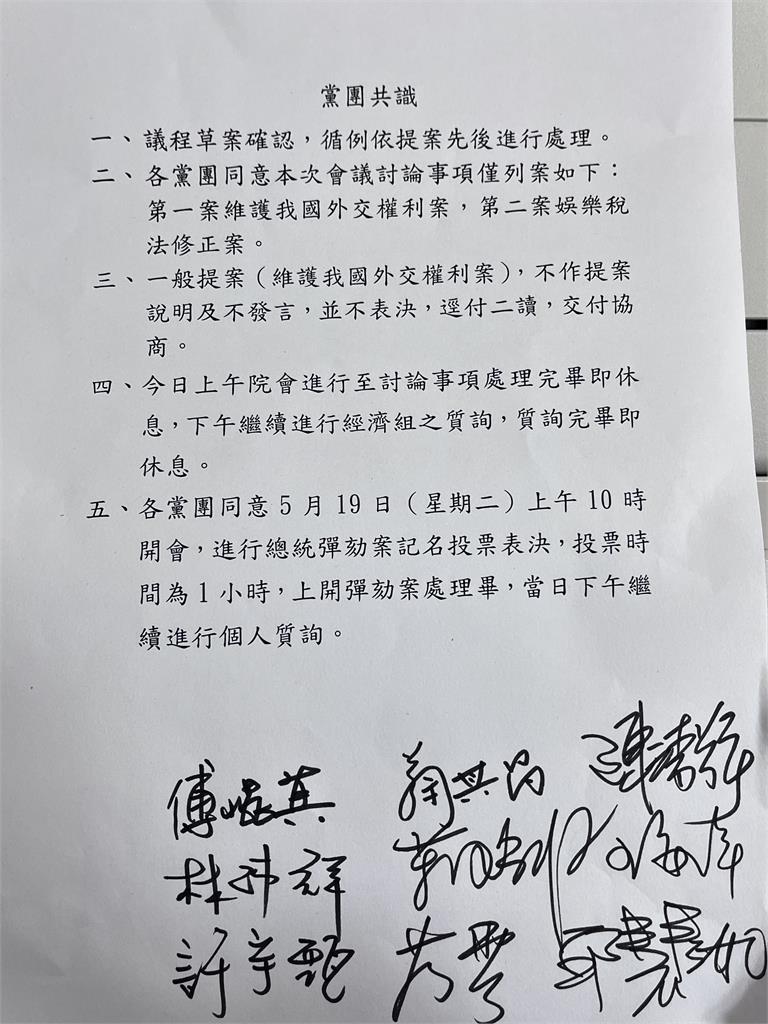 黨團共識
一、議程草案確認，循例依提案先後進行處理。
二、各黨團同意本次會議討論事項僅列案如下：
第一案維護我國外交權利案，第二案娛樂稅
法修正案。
三、一般提案（維護我國外交權利案），不作提案
說明及不發言，並不表決，逕付二讀，交付協
商。
四、今日上午院會進行至討論事項處理完畢即休
息，下午繼續進行經濟組之質詢，質詢完畢即
休息。
五、各黨團同意5月19日（星期二）上午10時
開會，進行總統彈劾案記名投票表決，投票時
間為1小時，上開彈劾案處理畢，當日下午繼
續進行個人質詢。
傅崐萁
林沛祥
許宇甄